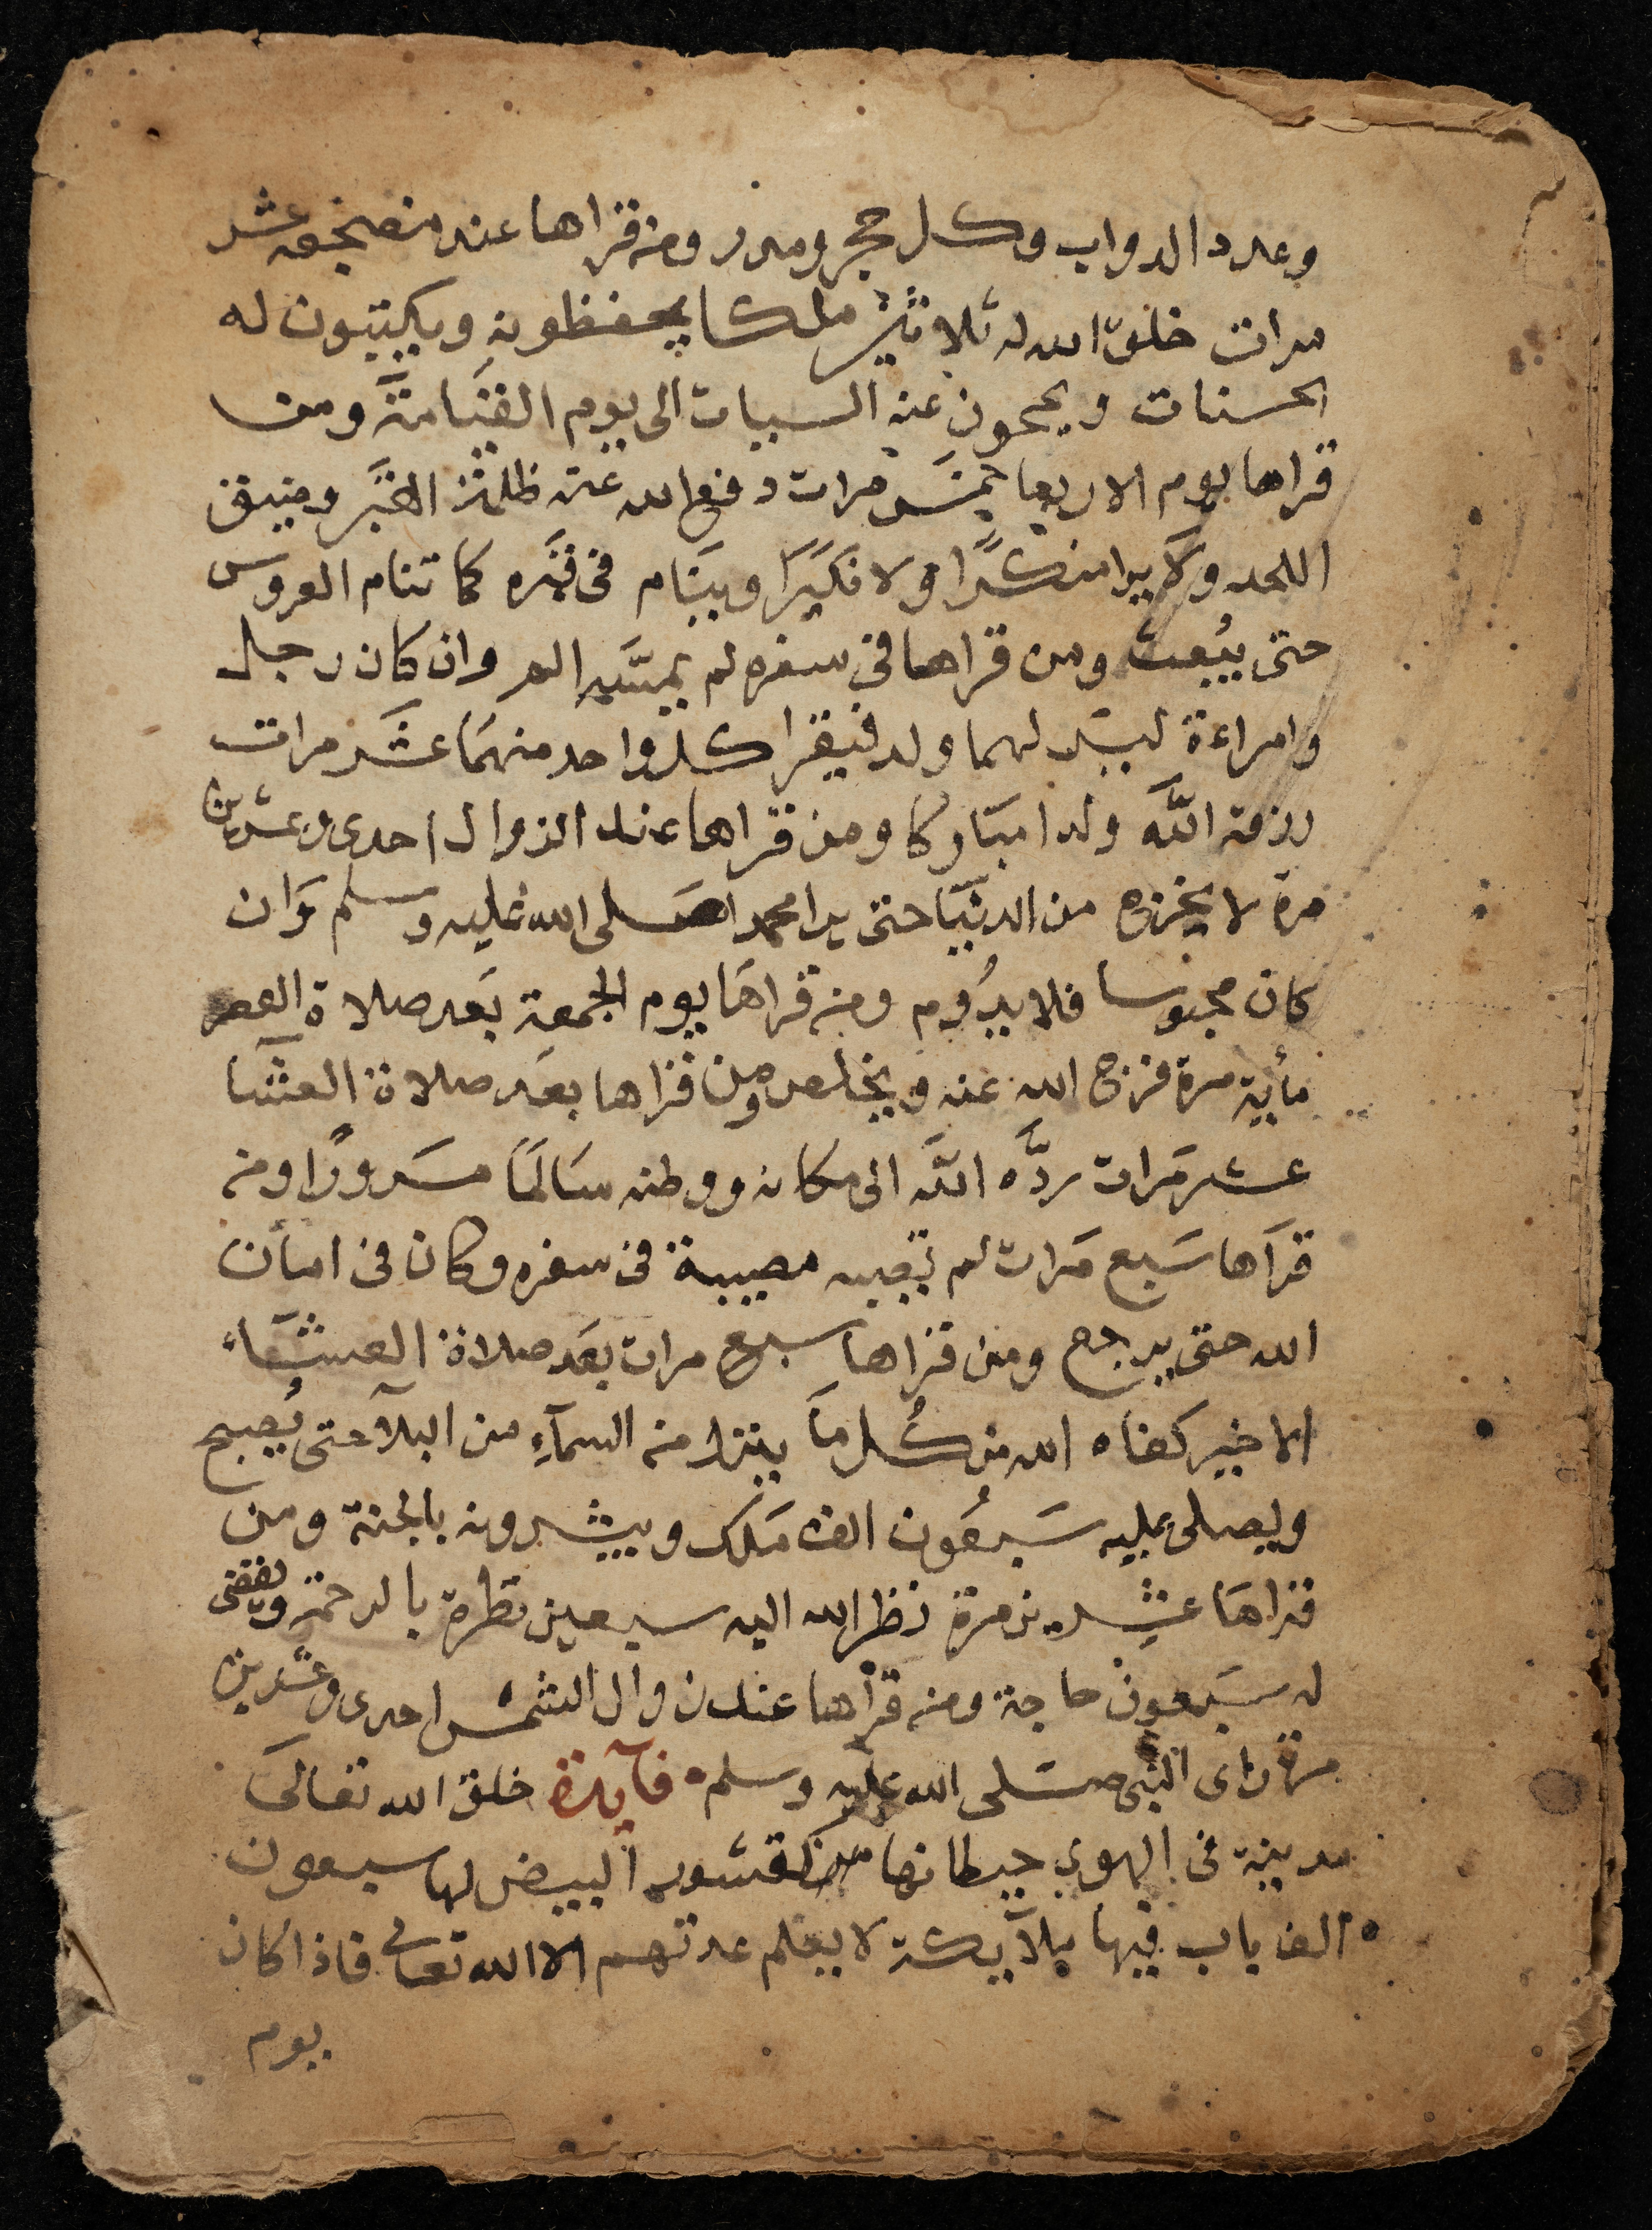 وعدد الدواب وكل حجر ومدر ومن قراها عند مضجعه عشر
مرات خلق الله له ثلاثين ملكا يحفظونه ويكتبون له
الحسنات ويمحون عنه السيات الى يوم القيامة ومن
قراها يوم الاربعا خمس مرات دفع الله عنه ظلمة القبر وضيق
اللحد ولا يرا منكرًا ولا نكيرا وينام فى قبره كما تنام العروس
حتى يبعث ومن قراها فى سفره لم يمسه الم وان كان رجل
وامراءة ليس لهما ولد فيقرا كل واحد منهما عشر مرات
رزقه الله ولدا مباركا ومن قراها عند الزوال احدى وعشرين
مرة لا يخرج من الدنيا حتى يرا محمدا صلى الله عليه وسلم وان
كان محبوسا فلا يدوم ومن قراها يوم الجمعة بعد صلاة العصر
مأية مرة فرج الله عنه ويخلص ومن قراها بعد صلاة العشا
عشر مرات ردَّه الله الى مكانه ووطنه سالما مسرورًا ومن
قراها سبع مرات لم تصبه مصيبة فى سفره وكان فى امان
الله حتى يرجع ومن قراها سبع مرات بعد صلاة العشاء
الاخير كفاه الله من كُل ما ينزل من السمآءِ من البلآ حتى يُصبح
ويصلى عليه سبعُون الف ملك ويبشرونه بالجنة ومن
قراها عشرين مرة نظر الله اليه سبعين نظرة بالرحمة ويقضى
له سبعون حاجة ومن قرأها عند زوال الشمس احدى وعشرين
مرة راى النبى صلى الله عليه وسلم فآيدة خلق الله تعالى
مدينة فى الهوى حيطانها من قشور البيض لها سبعون
الف باب فيها ملآيكة لا يعلم عدتهم الا الله تعالى فاذا كان
يوم